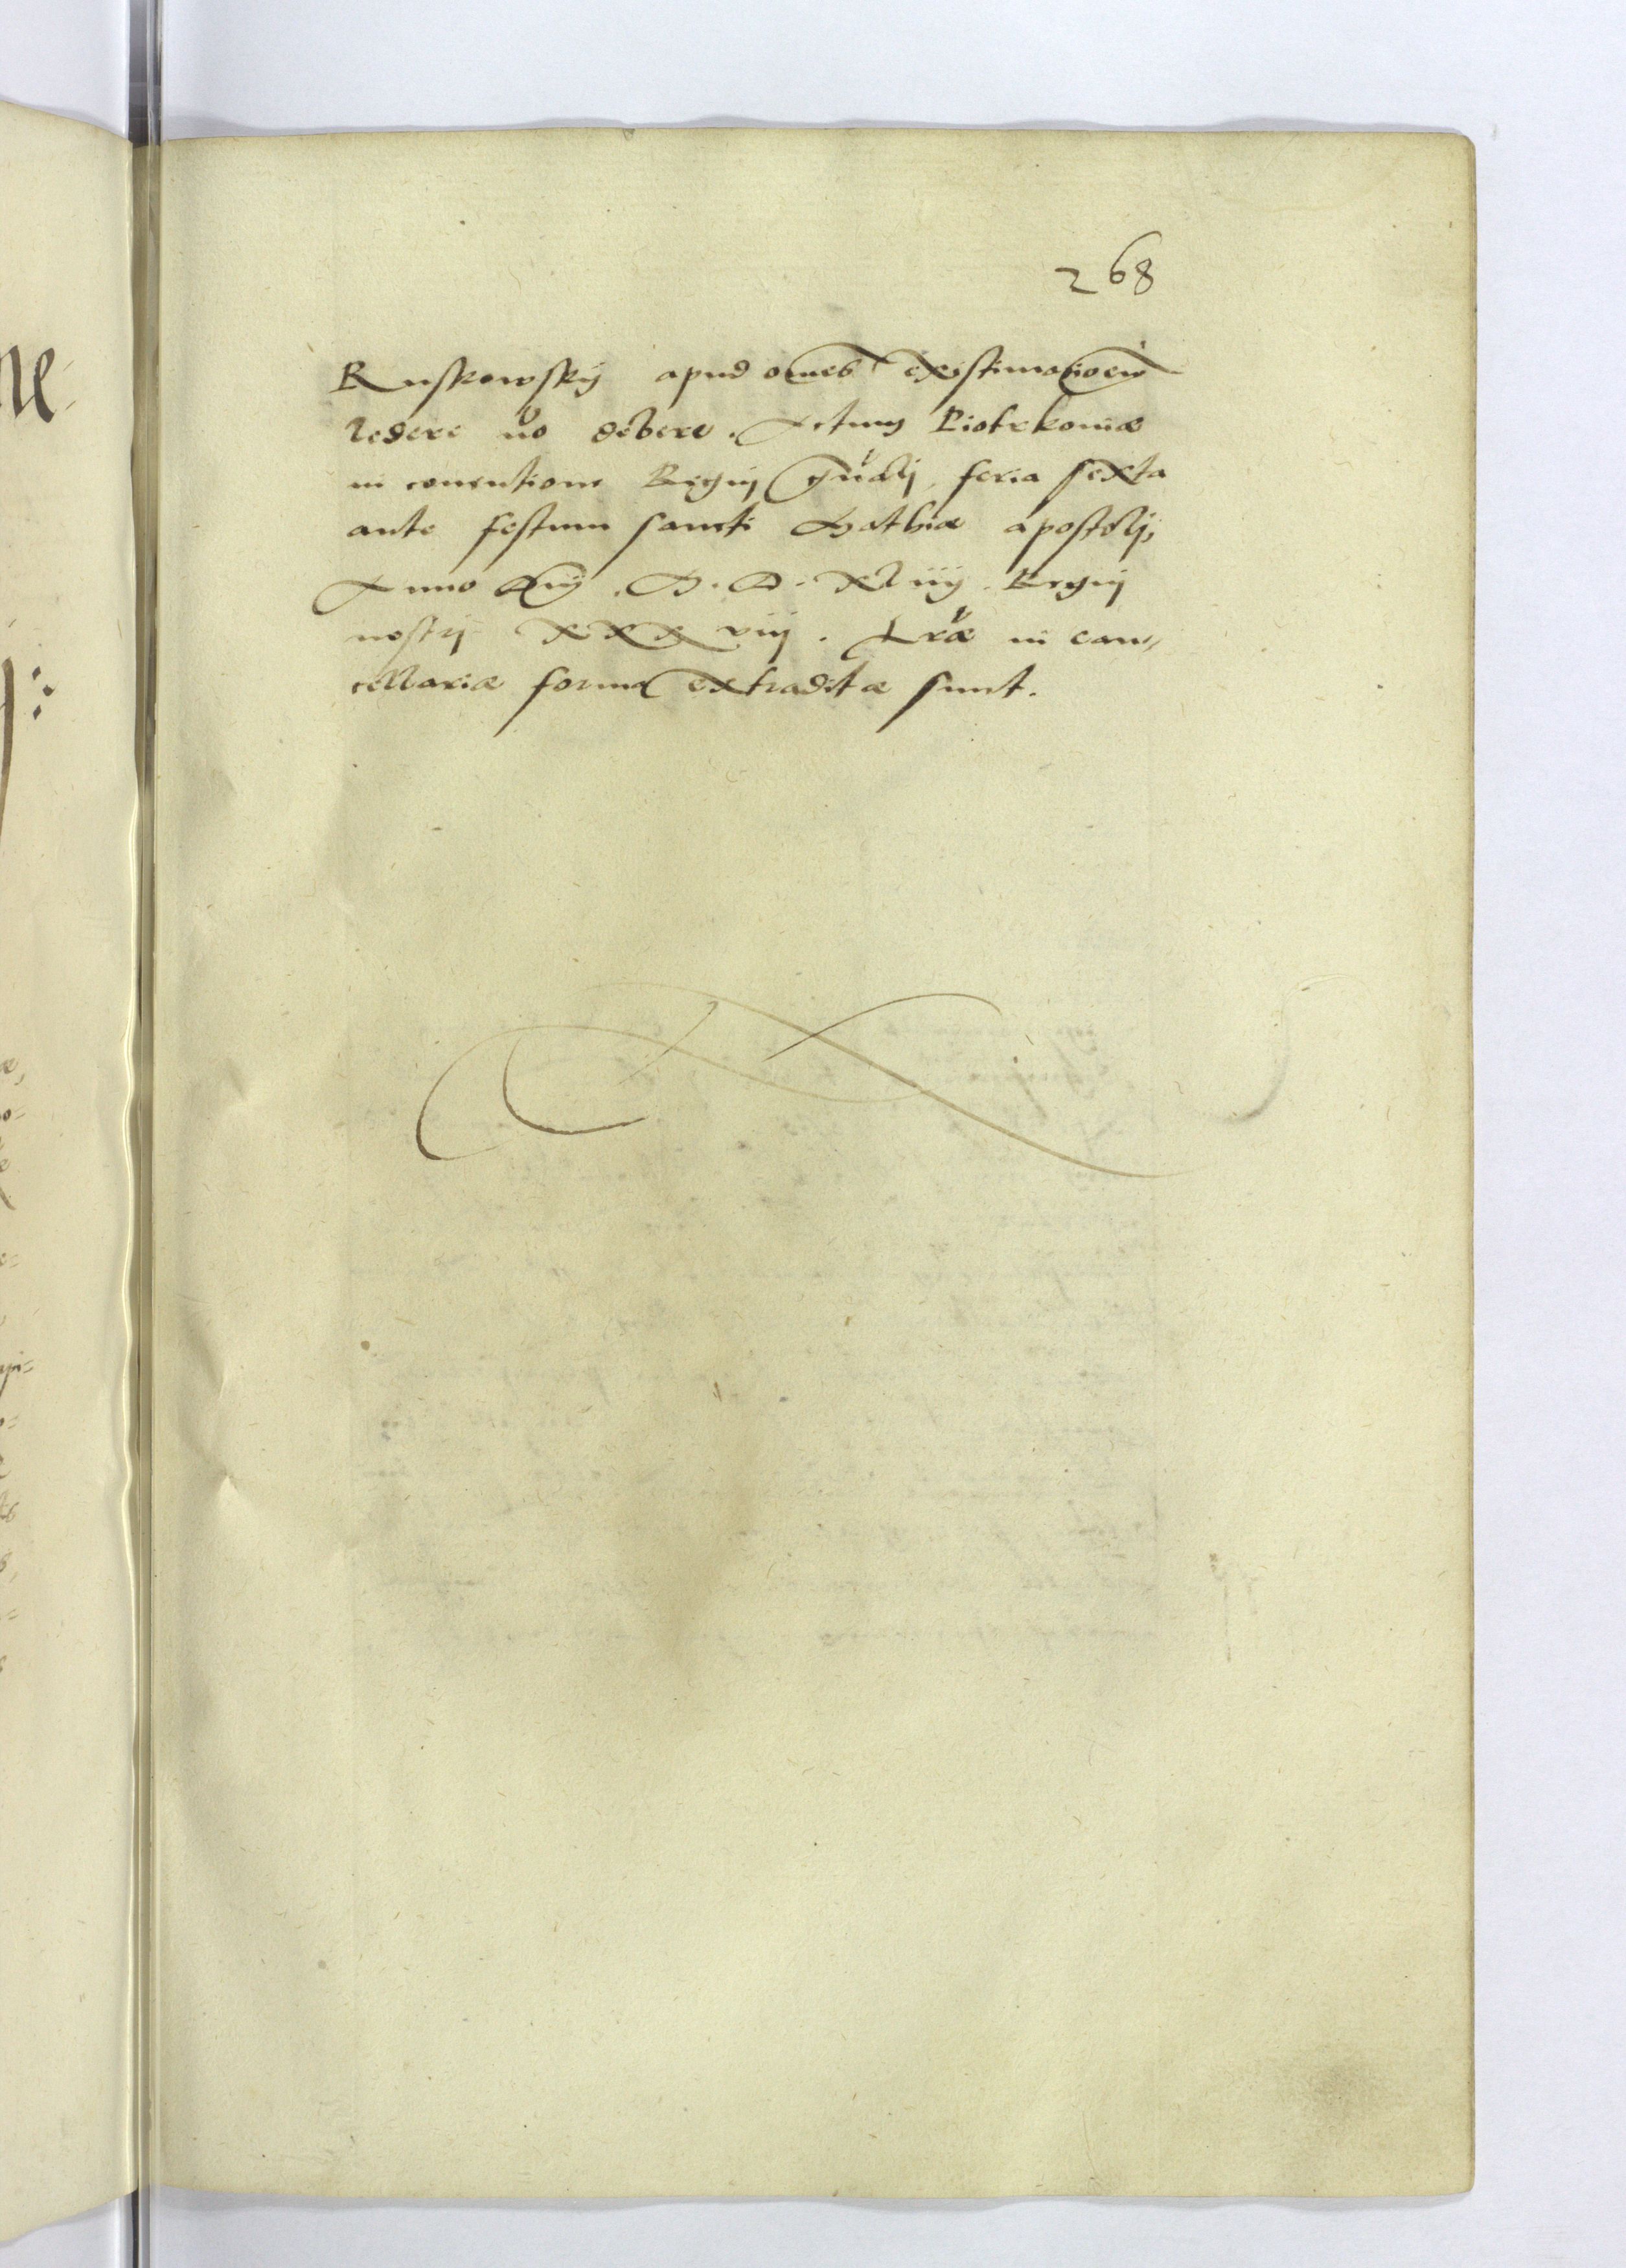 268
Ruskowskÿ apud om̄es existimatioē̄m
ledere nō debere. Actum Piotrkoviæ
in conventione Regnj gn̄alj, feria sexta
ante festum sancti Mathiæ apostolj,
Anno Dnj. M. D. XLiiij. Regnj
nostrj XXXviij. Lræ in can„
cellariæ forma extraditæ sunt.